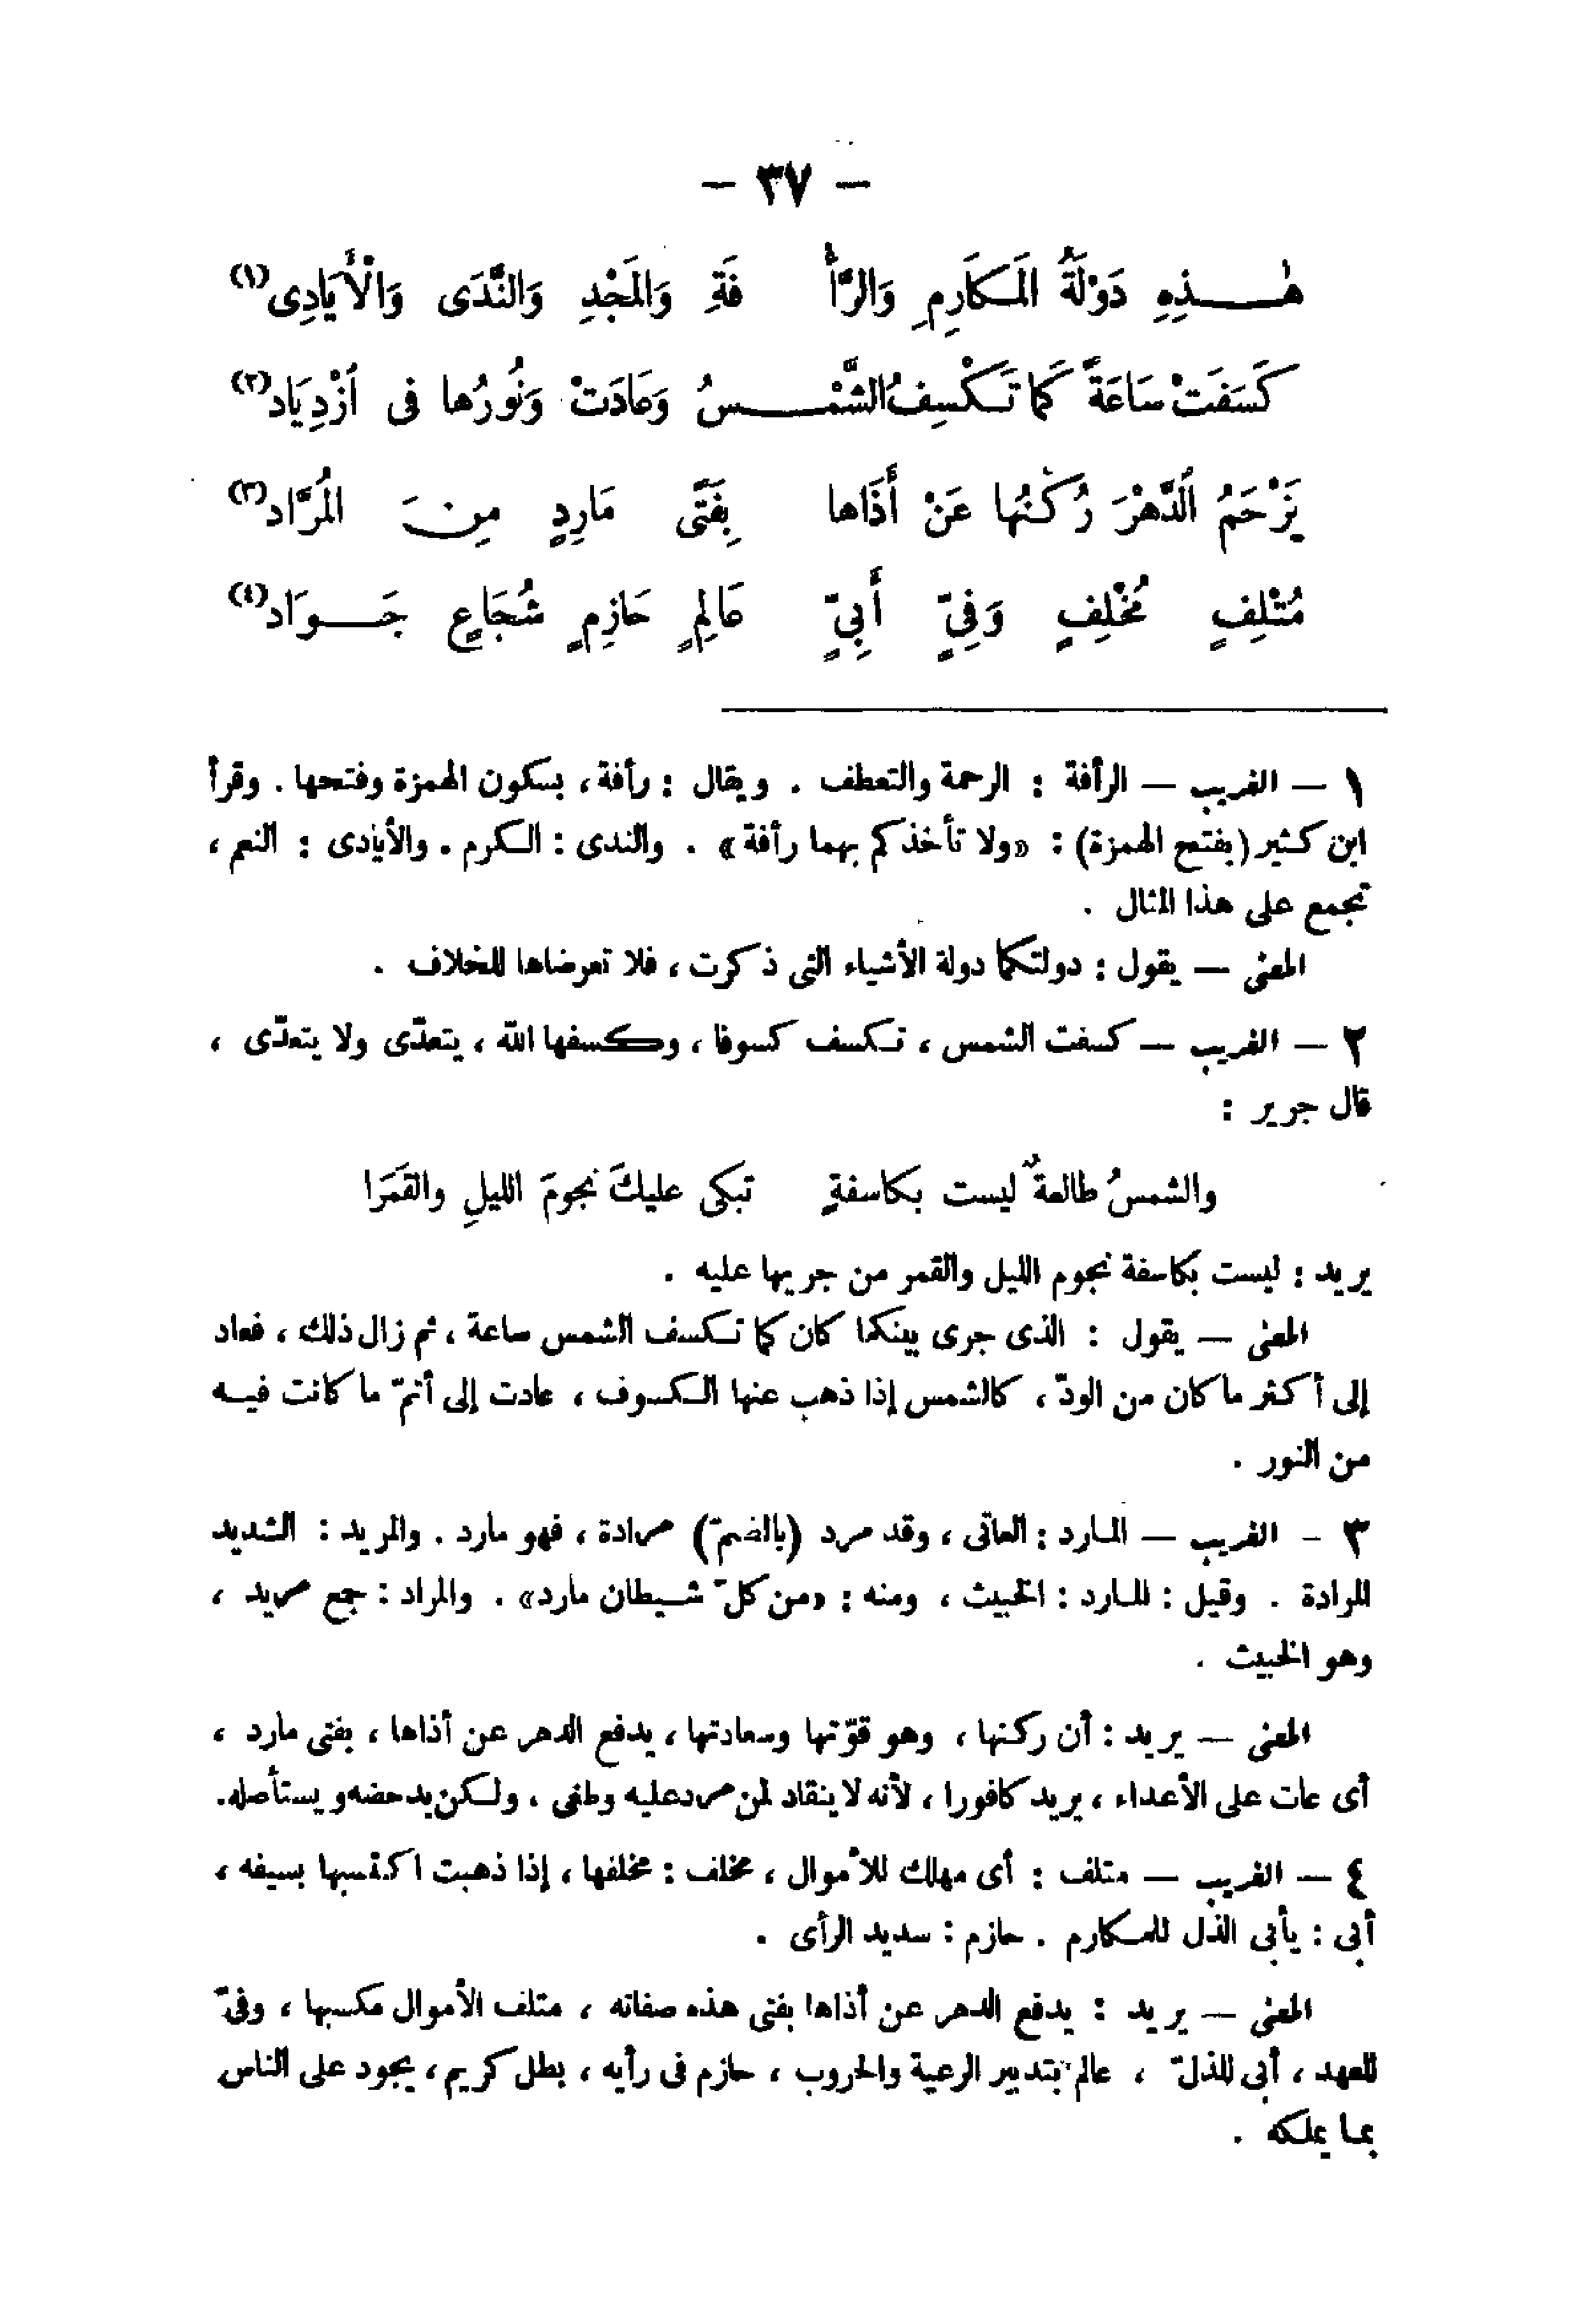 — ٣٧ —
هٰـذِهِ دَوْلَةُ المَكَارِمِ وَالرَّأْ فَةِ وَالمَجْدِ وَالنَّدَى وَالْأَيَادِى(١)
كَسَفَتْ سَاعَةً كَمَا تَكْسِفُ الشَّمْـسُ وَعَادَتْ وَنُورُها فى ٱزْدِيَاد(٢)
يَزْحَمُ ٱلدَّهْرَ رُكْنُها عَنْ أَذَاها بِفَتًى مَارِدٍ مِنَ المُرَّاد(٣)
مُتْلِفٍ مُخْلِفٍ وَفِيٍّ أَبِيٍّ عَالِمٍ حَازِمٍ شُجَاعٍ جَـوَاد(٤)
١ — الغريب — الرأفة : الرحمة والتعطف . ويقال : رأفة ، بسكون الهمزة وفتحها . وقرأ
ابن كثير (بفتح الهمزة) : «ولا تأخذكم بهما رأفة» . والندى : الكرم . والأيادى : النعم ،
تجمع على هذا المثال .
المعنى — يقول : دولتكما دولة الأشياء التى ذكرت ، فلا تعرضاها للخلاف .
٢ — الغريب — كسفت الشمس ، تكسف كسوفا ، وكسفها الله ، يتعدّى ولا يتعدّى ،
قال جرير :
والشمسُ طالعةٌ ليست بكاسفةٍ تبكى عليكَ نجومَ الليلِ والقَمَرَا
يريد : ليست بكاسفة نجوم الليل والقمر من جريها عليه .
المعنى — يقول : الذى جرى بينكما كان كما تكسف الشمس ساعة ، ثم زال ذلك ، فعاد
إلى أكثر ما كان من الودّ ، كالشمس إذا ذهب عنها الكسوف ، عادت إلى أتمّ ما كانت فيه
من النور .
٣ - الغريب — المارد : العاتى ، وقد مرد (بالضمّ) مرادة ، فهو مارد . والمريد : الشديد
المرادة . وقيل : المارد : الخبيث ، ومنه : «من كلّ شيطان مارد» . والمراد : جمع مريد ،
وهو الخبيث .
المعنى — يريد : أن ركنها ، وهو قوّتها وسعادتها ، يدفع الدهر عن أذاها ، بفتى مارد ،
أى عات على الأعداء ، يريد كافورا ، لأنه لا ينقاد لمن مرد عليه وطغى ، ولكن يدحضه ويستأصله.
٤ — الغريب — متلف : أى مهلك للأموال ، مخلف : مخلفها ، إذا ذهبت اكتسبها بسيفه ،
أبى : يأبى الذل للمكارم . حازم : سديد الرأى .
المعنى — يريد : يدفع الدهر عن أذاها بفتى هذه صفاته ، متلف الأموال مكسبها ، وفىّ
للعهد ، أبى للذلّ ، عالم بتدبير الرعية والحروب ، حازم فى رأيه ، بطل كريم ، يجود على الناس
بما يملكه .